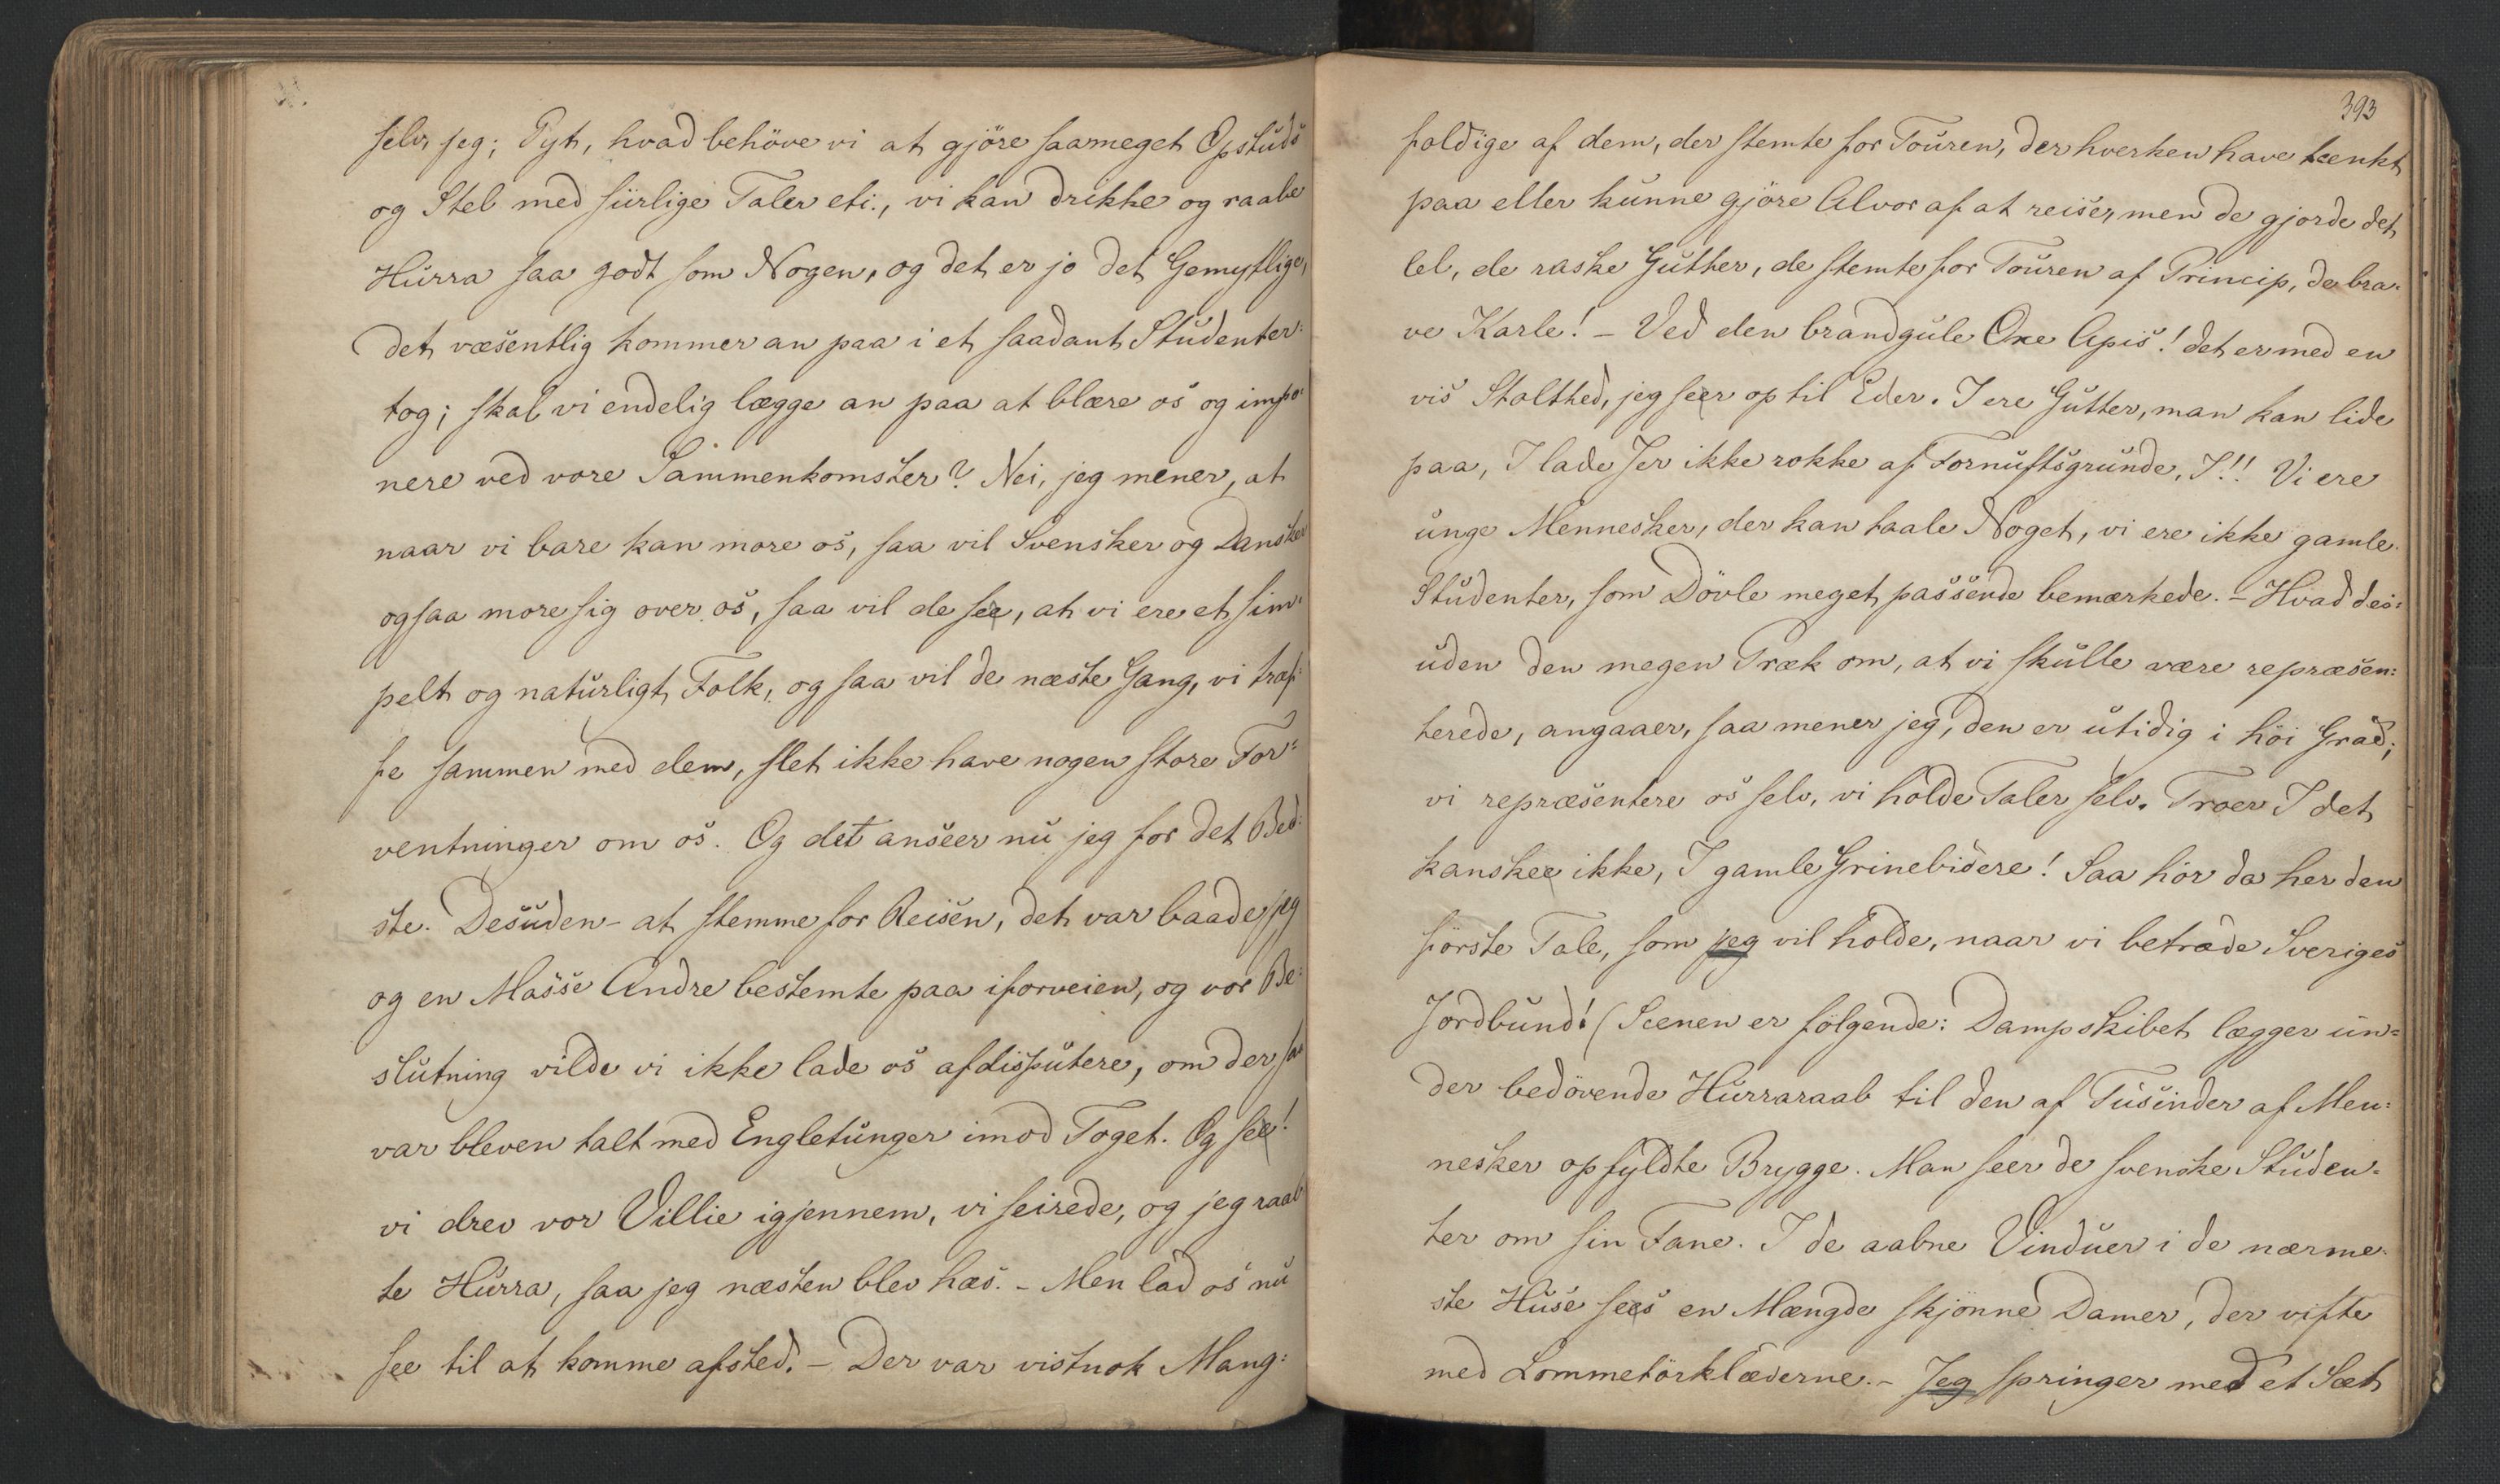 selv, jeg; Pyt, hvad behöve vi at gjöre saameget Opstuds
og Stel med siirlige Taler etc., vi kan drikke og raabe
Hurra saa godt som Nogen, og det er jo det Gemytlige,
det væsentlig kommer an paa i et saadant Studenter:
tog; skal vi endelig lægge an paa at blære os og impo:
nere ved vore Sammenkomster? Nei, jeg mener, at
naar vi bare kan more os, saa vil Svensker og Dansker
ogsaa more sig over os, saa vil de see, at vi ere et sim:
pelt og naturligt Folk, og saa vil de næste Gang, vi træf:
fe sammen med dem, slet ikke have nogen store For=
ventninger om os. Og det anseer nu jeg for det Bed:
ste. Desuden - at stemme for Reisen, det var baade jeg
og en Masse Andre bestemte paa iforveien, og vor Be:
slutning vilde vi ikke lade os afdisputere, om der saa
var bleven talt med Engletunger imod Toget. Og see!
vi drev vor Villie igjennem, vi seirede, og jeg raab
te Hurra, saa jeg næsten blev hæs. - Men lad os nu
see til at komme afsted. - Der var vistnok Mang:
393
foldige af dem, der stemte for Touren, der hverken have tænkt
paa eller kunne gjöre Alvor af at reise, men de gjorde det
lel, de raske Gutter, de stemte for Touren af Princip, de bra-
ve Karle! - Ved den brandgule Oxe Apis! det er med en
vis Stolthed, jeg seer op til Eder. I ere Gutter, man kan lide
paa, I lade Jer ikke rokke af Fornuftsgrunde, I!! Vi ere
unge Mennesker, der kan taale Noget, vi ere ikke gamle
Studenter, som Dövle meget passende bemærkede. - Hvad des:
uden den megen Præk om, at vi skulle være repræsen:
terede, angaaer, saa mener jeg, den er utidig i höi Grad;
vi repræsentere os selv, vi holde Taler selv. Troer I det
kanskee ikke, I gamle Grinebidere! Saa hör da her den
förste Tale, som jeg vil holde, naar vi betræde Sveriges
Jordbund! (Scenen er fölgende: Dampskibet lægger un=
der bedövende Hurraraab til den af Tusinder af Men:
nesker opfyldte Brygge. Man seer de svenske Studen=
ter om sin Fane. I de aabne Vinduer i de nærme-
ste Huse sees en Mængde skjönne Damer, der vifte
med Lommetörklæderne. - Jeg springer med et Sæt